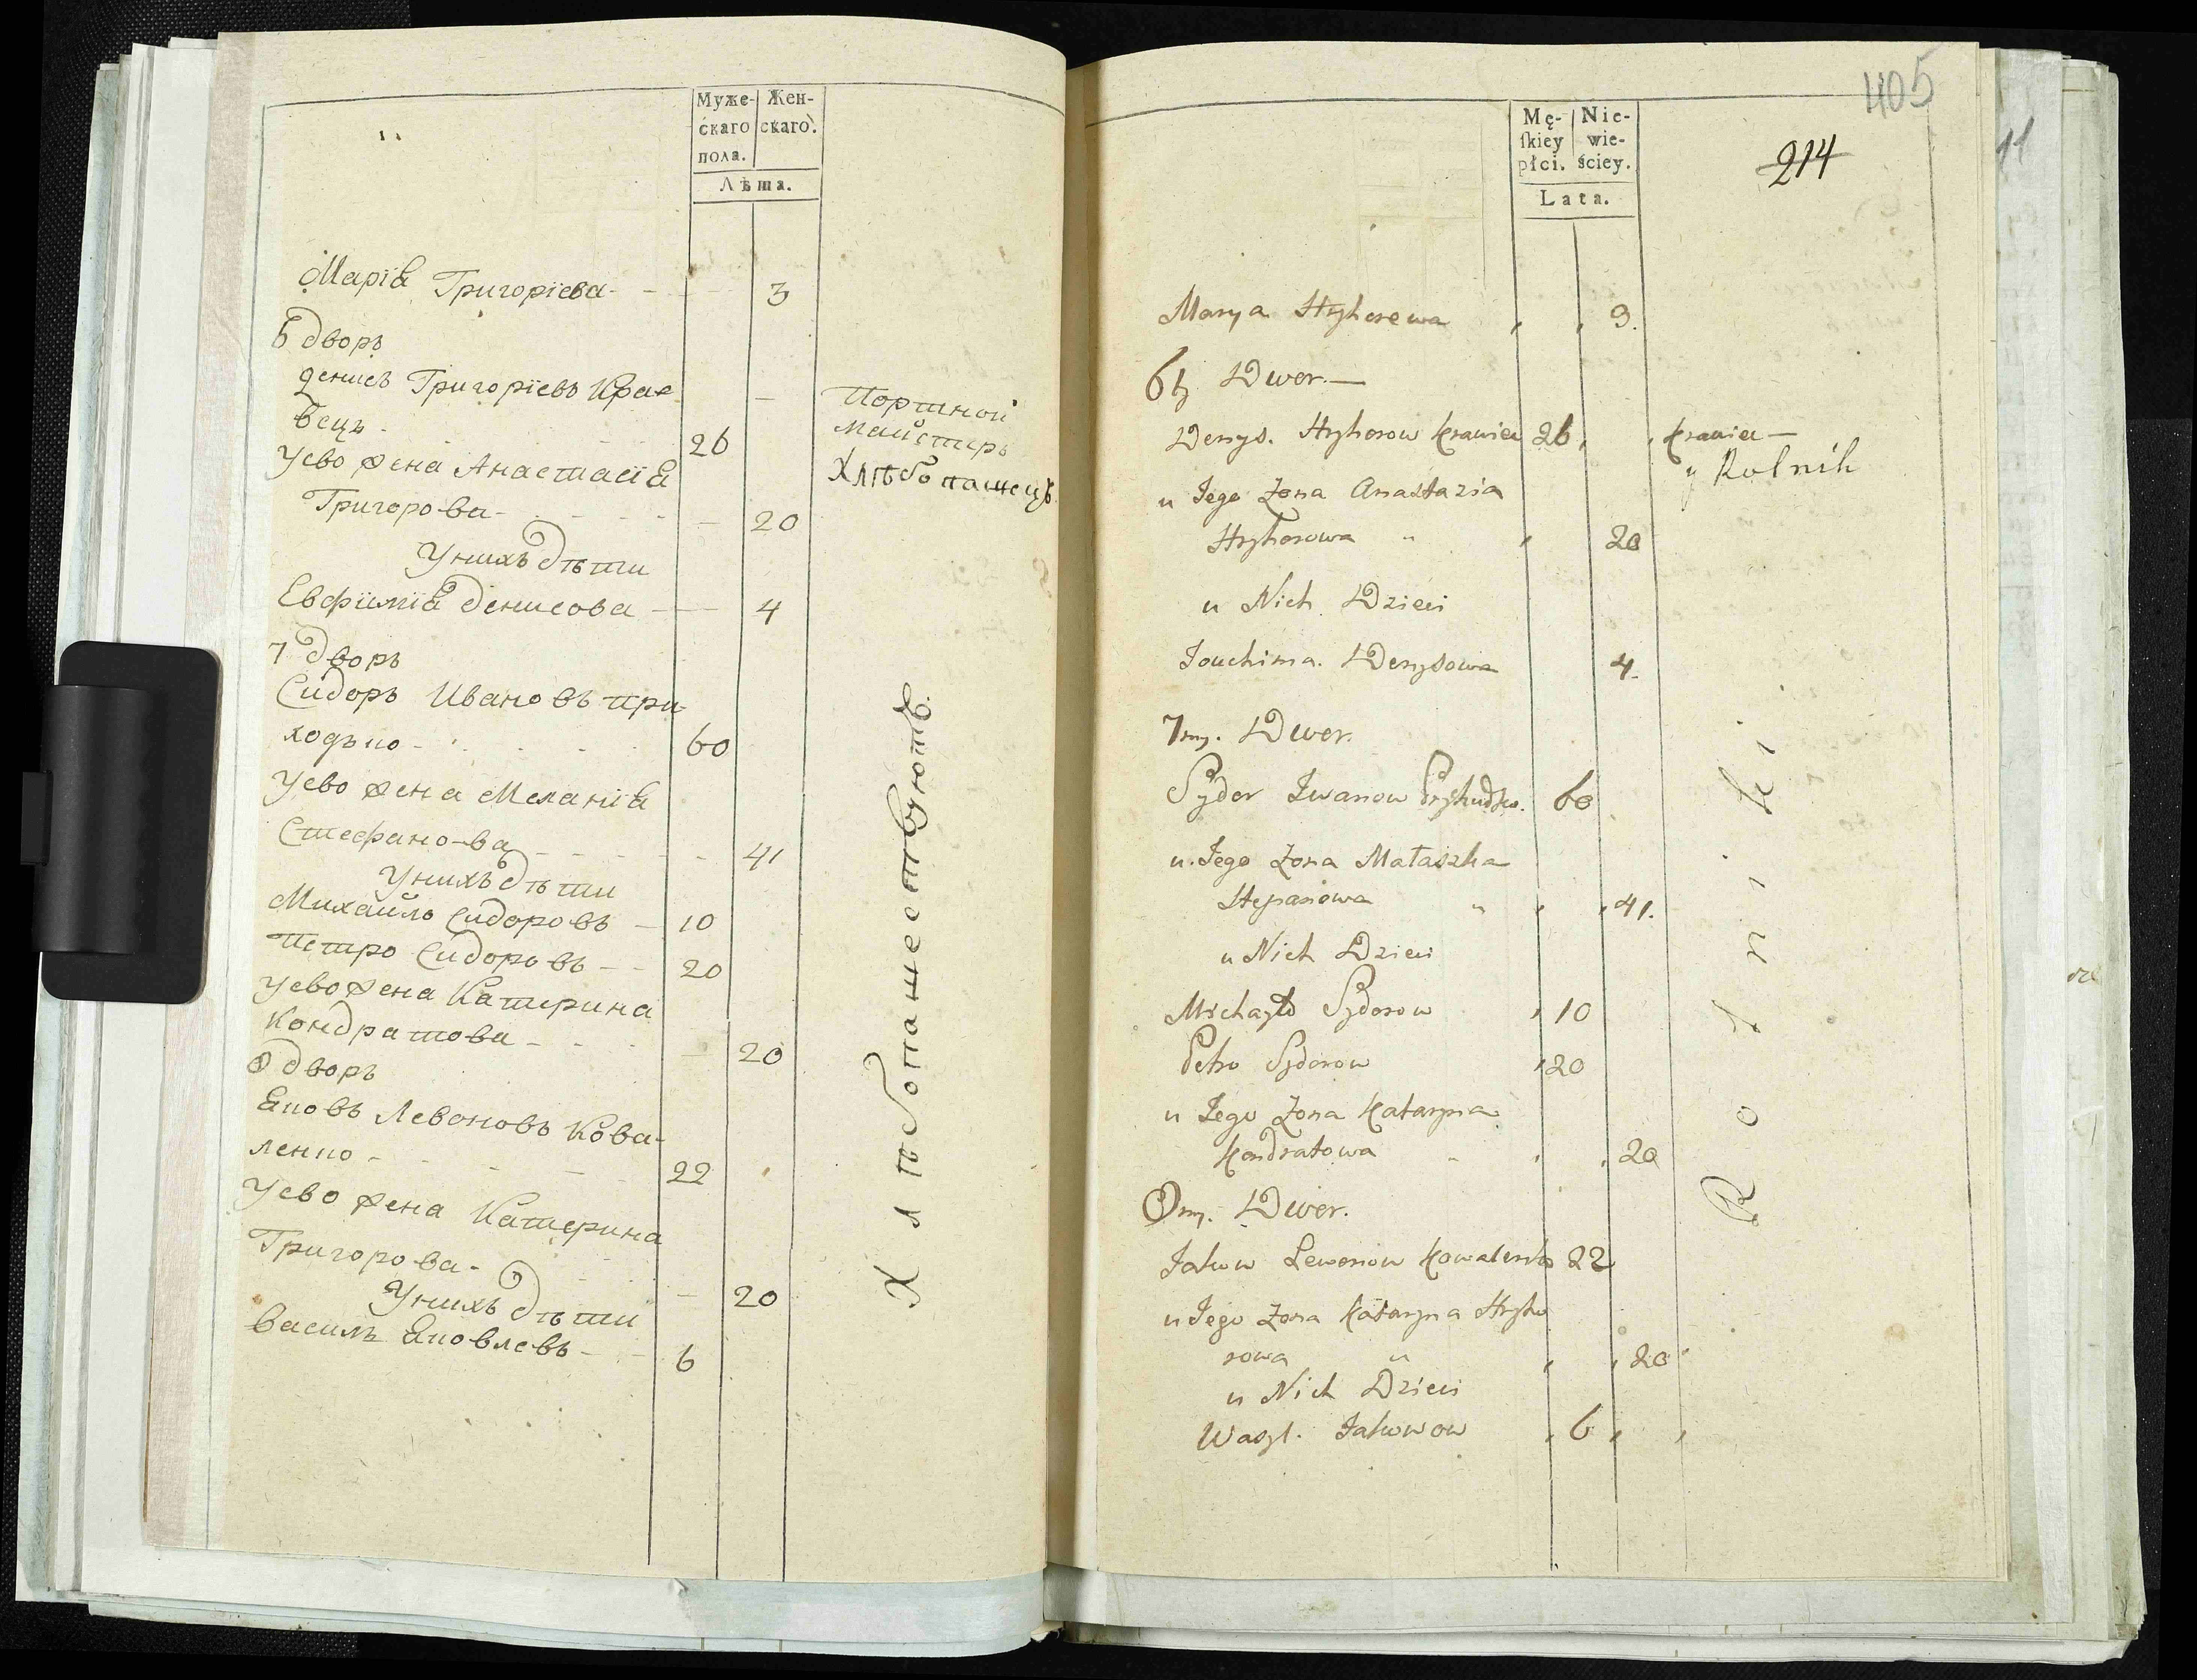 Муже-
скаго
пола.
Жен-
скаго.
Лѣта.
Марія Григоріева - - - 3
6 дворъ
Денисъ Григоріевъ Кра-
вецъ - 26
Портной
майстеръ
Хлѣбопашецъ
У ево жена Анастасія
Григорова - - - 20
У нихъ дѣти
Евфимія Денисова - - 4
7 дворъ
Сидоръ Ивановъ при-
ходько - 60
У ево жена Меланія
Стефанова - - - 41
У нихъ дѣти
Михайло Сидоровъ - 10
Петро Сидоровъ - - 20
У ево жена Катерина
Кондратова - - 20
8 дворъ
Яковъ Левоновъ Кова-
ленко - 22
У ево жена Катерина
Григорова - - 20
У нихъ дѣти
Василь Яковлевъ - - 6
Хлѣбопашествуютъ.
405
214
11
Mę-
skiey
płci.
Nie-
wie-
ściey.
Lata.
Marya Hryhorewa 3.
6ty Dwor. —
Denys. Hryhorow Krawiec 26, Krawiec —
y Rolnik
u Jego Zona Anastazia
Hryhorowa 20
u Nich Dzieci
Jouchima. Denysowa 4.
7my. Dwor.
Sydor Iwanow Prychudko. 60
u Jego Zona Małaszka
Stepanowa 41.
u Nich Dzieci
Michayło Sydorow 10
Petro Sydorow 20
u Jego Zona Kataryna
Kondratowa 20
8my. Dwor.
Jakow Lewonow Kowalenko 22
u Jego Zona Kataryna Hryho
rowa 20
u Nich Dzieci
Wasyl. Jakowow 6
Rolniki